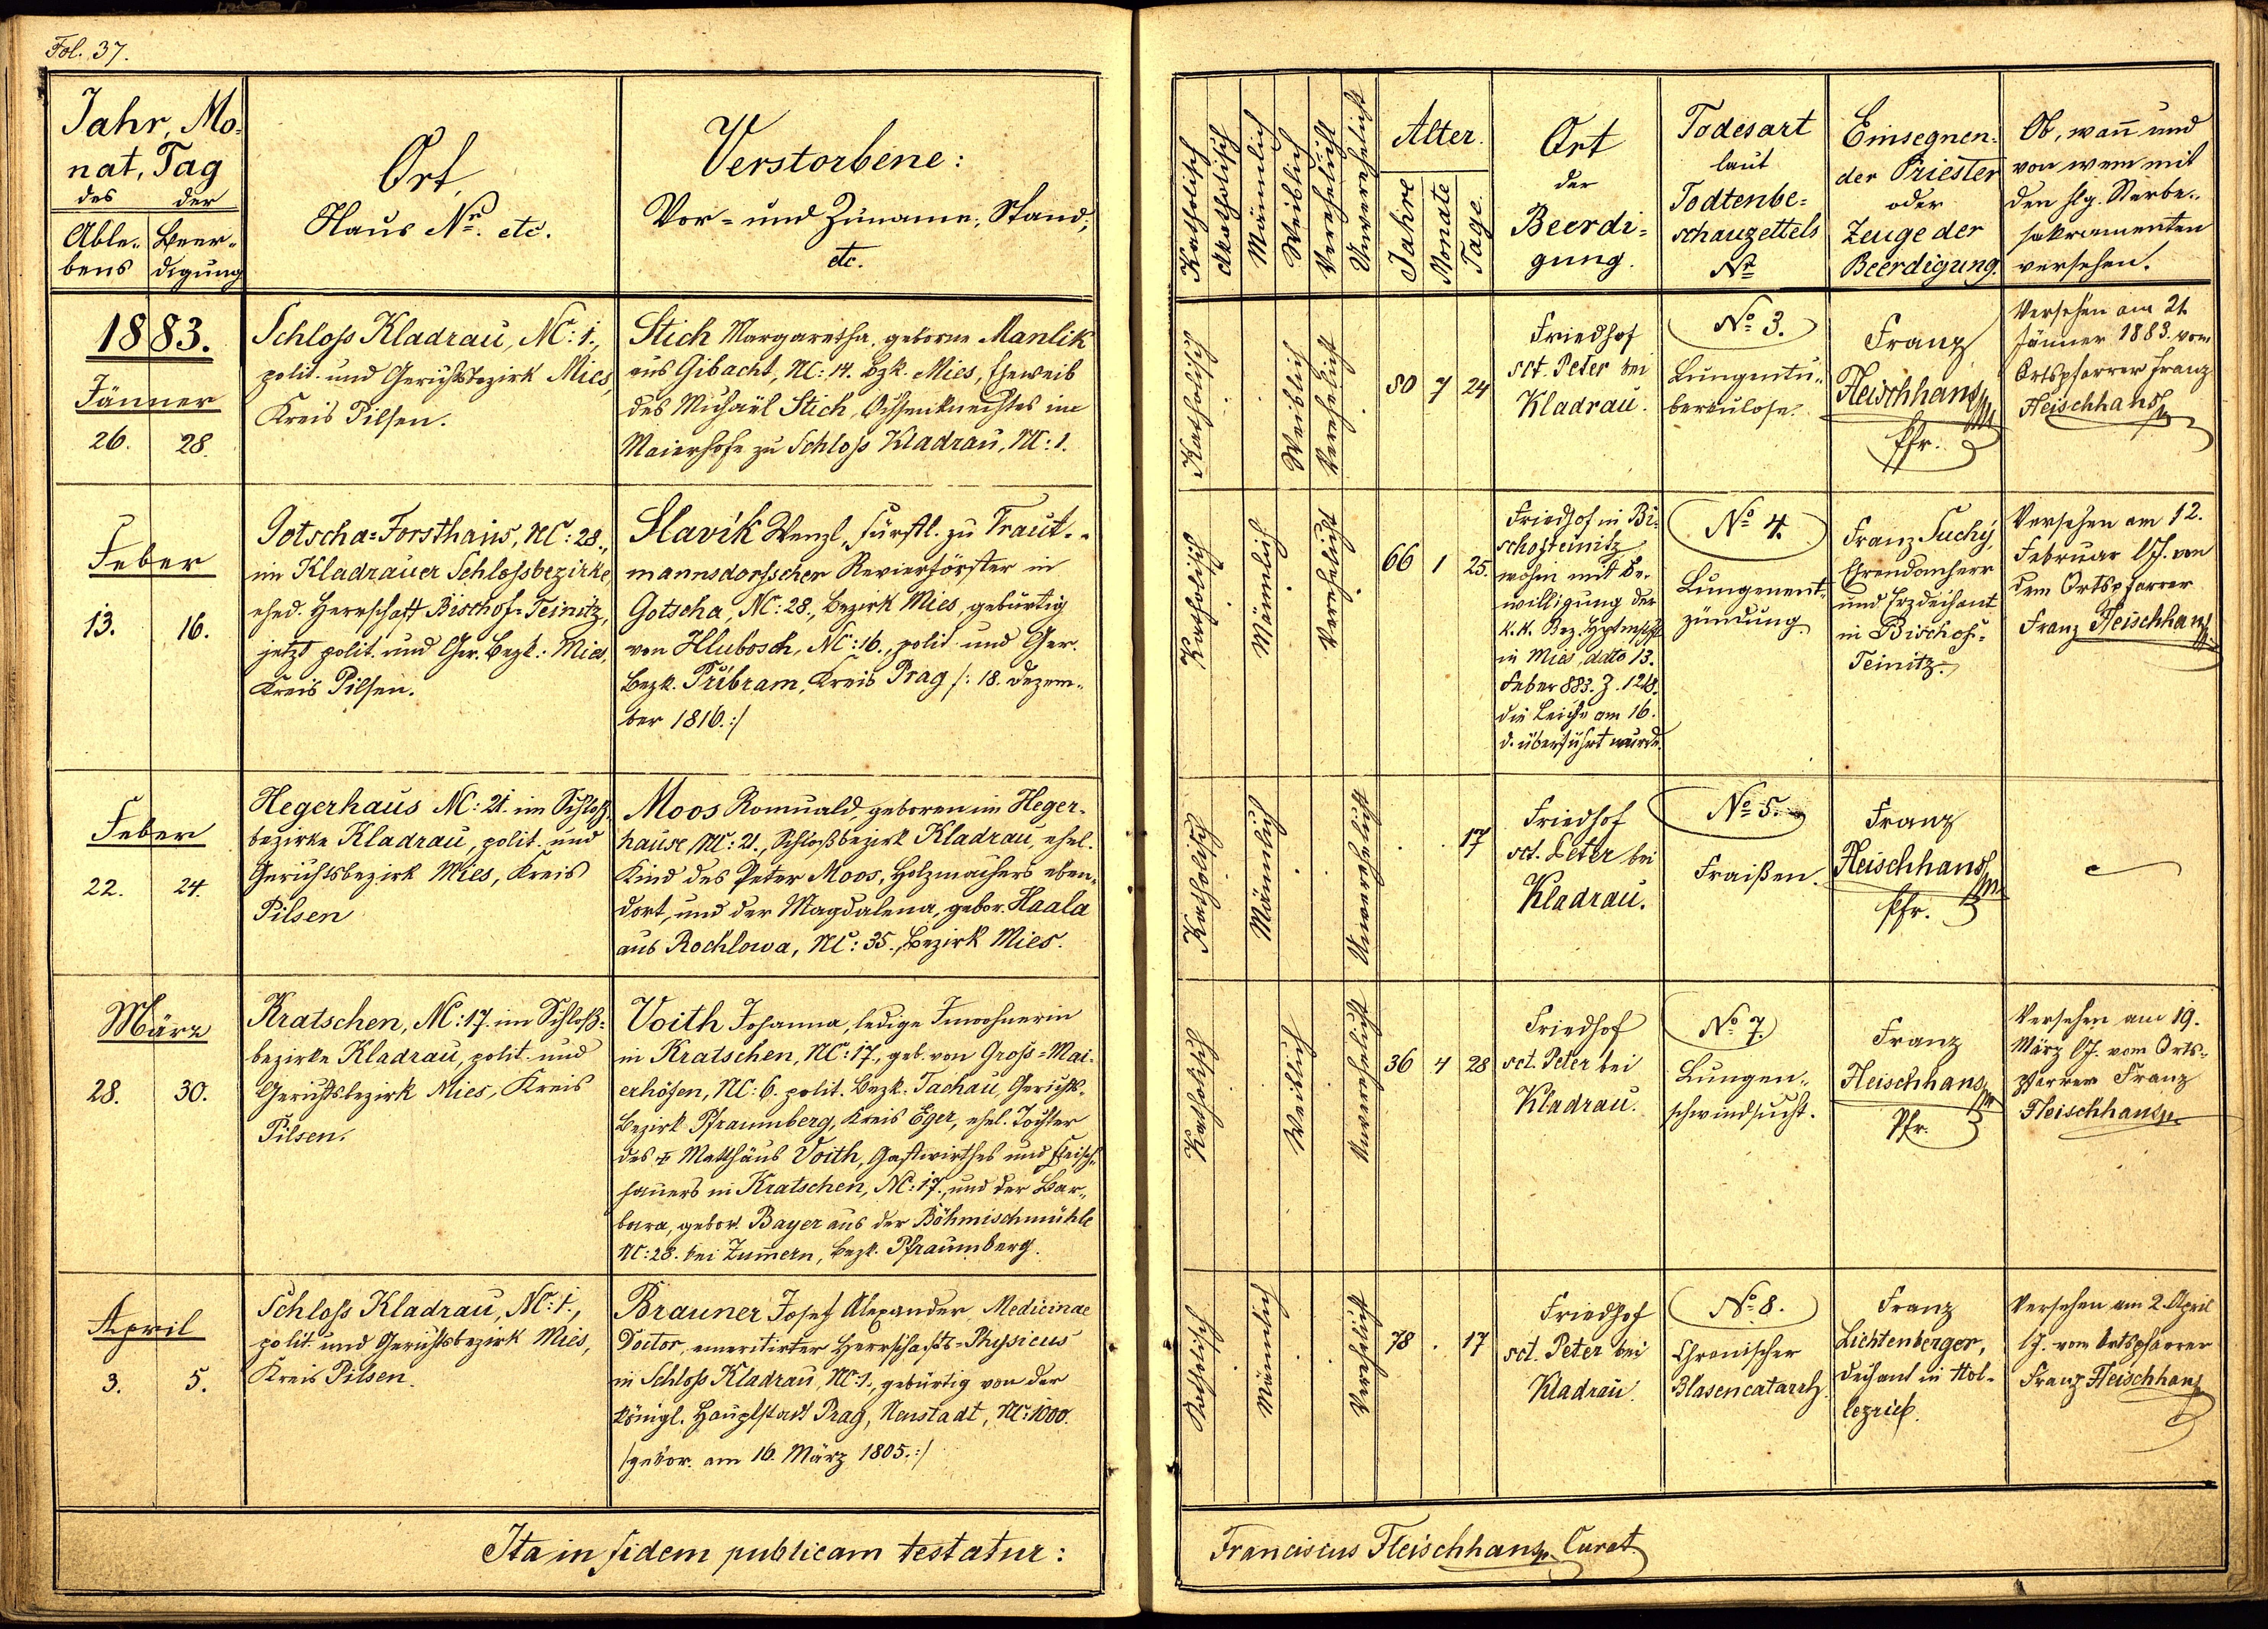 Fol. 37.
Jahr, Mo-
nat, Tag
des der
Able- Beer-
bens digung
Ort,
Haus Nr. etc.
Verstorbene:
Vor- und Zuname, Stand,
etc.
1883.
Jänner
26. 28.
Schloss Kladrau, NC: 1.,
polit. und Gerichtsbezirk Mies,
Kreis Pilsen.
Stich Margaretha, geborne Manlik
aus Gibacht, NC: 14. Bzk. Mies, Eheweib
des Michael Stich, Ochsenknechtes im
Maierhofe zu Schloss Kladrau, NC: 1.
Feber
13. 16.
Gotscha-Forsthaus, NC: 28.,
im Kladrauer Schlossbezirke,
ehed. Herrschaft Bischof-Teinitz,
jetzt polit. und Ger. Bezk. Mies,
Kreis Pilsen.
Slavík Wenzl, Fürstl. zu Traut-
mannsdorfscher Revierförster in
Gotscha, NC: 28., Bezirk Mies, gebürtig
von Hlubosch, NC: 16., polit. und Ger.
Bezk. Přibram, Kreis Prag /: 18. Dezem-
ber 1816. :/
Feber
22. 24.
Hegerhaus NC: 21. im Schloß-
bezirke Kladrau, polit. und
Gerichtsbezirk Mies, Kreis
Pilsen
Moos Romuald, geboren im Heger-
hause NC: 21., Schloßbezirk Kladrau, ehel.
Kind des Peter Moos, Holzmachers eben-
dort, und der Magdalena, gebor. Haala
aus Rochlowa, NC: 35., Bezirk Mies.
März
28. 30.
Kratschen, NC: 17. im Schloß-
bezirke Kladrau, polit. und
Gerichtsbezirk Mies, Kreis
Pilsen.
Voith Johanna, ledige Inwohnerin
in Kratschen, NC: 17., geb. von Gross-Mai-
erhöfen, NC: 6. polit. Bezk. Tachau, Gerichts-
Bezirk Pfraumberg, Kreis Eger, ehel. Tochter
des Matthäus Voith, Gastwirthes und Fleisch-
hauers in Kratschen, NC: 17., und der Bar-
bara, gebor. Bayer aus der Böhmischmühle
NC: 28. bei Zummern, Bezk. Pfraumberg.
April
3. 5.
Schloss Kladrau, NC: 1.,
polit. und Gerichtsbezirk Mies,
Kreis Pilsen.
Brauner Josef Alexander, Medicinae
Doctor, emeritirter Herrschafts-Physicus
in Schloss Kladrau, NC: 1., gebürtig von der
königl. Hauptstadt Prag, Neustadt, NC: 1000.
/gebor. am 16. März 1805. :/
Ita in fidem publicam testatur:
Katholisch
Akatholisch
Männlich
Weiblich
Verehelicht
Unverehelicht
Alter.
Jahre
Monate
Tage.
Ort
der
Beerdi-
gung.
Todesart
laut
Todtenbe-
schauzettels
Nr.
Einsegnen-
der Priester
oder
Zeuge der
Beerdigung.
Ob, wañ und
von wem mit
den hlg. Sterbe-
sakramenten
versehen.
Katholisch
Weiblich
Verehelicht
80 7 24
Friedhof
sct. Peter bei
Kladrau.
No 3.
Lungentu-
berculose.
Franz
Fleischhans
Pfr.
Versehen am 21.
Jänner 1883. vom
Ortspfarrer Franz
Fleischhans
Katholisch
Männlich
Verehelicht
66 1 25.
Friedhof in Bi-
schofteinitz
wohin mit Be-
willigung der
k.k. Bez. Hptmsch.
in Mies, ddto 13.
Feber 883. Z. 1248.
die Leiche am 16.
d. überführt wurde.
No 4.
Lungenent-
zündung.
Franz Suchý,
Ehrendomherr
und Erzdechant
in Bischof-
Teinitz.
Versehen am 12.
Februar l/J. von
dem Ortspfarrer
Franz Fleischhans
Katholisch
Männlich
Unverehelicht
. . 17
Friedhof
sct. Peter bei
Kladrau.
No 5.
Fraißen.
Franz
Fleischhans
Pfr.
Katholisch
Weiblich
Unverehelicht
36 4 28
Friedhof
sct. Peter bei
Kladrau.
No 7.
Lungen-
schwindsucht.
Franz
Fleischhans
Pfr.
Versehen am 19.
März l/J. vom Orts-
pfarrer Franz
Fleischhans
Katholisch
Männlich
Verehelicht
78 . 17
Friedhof
sct. Peter bei
Kladrau.
No 8.
Chronischer
Blasencatarrh.
Franz
Lichtenberger,
Dechant in Hol-
lezrieb.
Versehen am 2. April
l/J. vom Ortspfarrer
Franz Fleischhans
Franciscus Fleischhans Curat